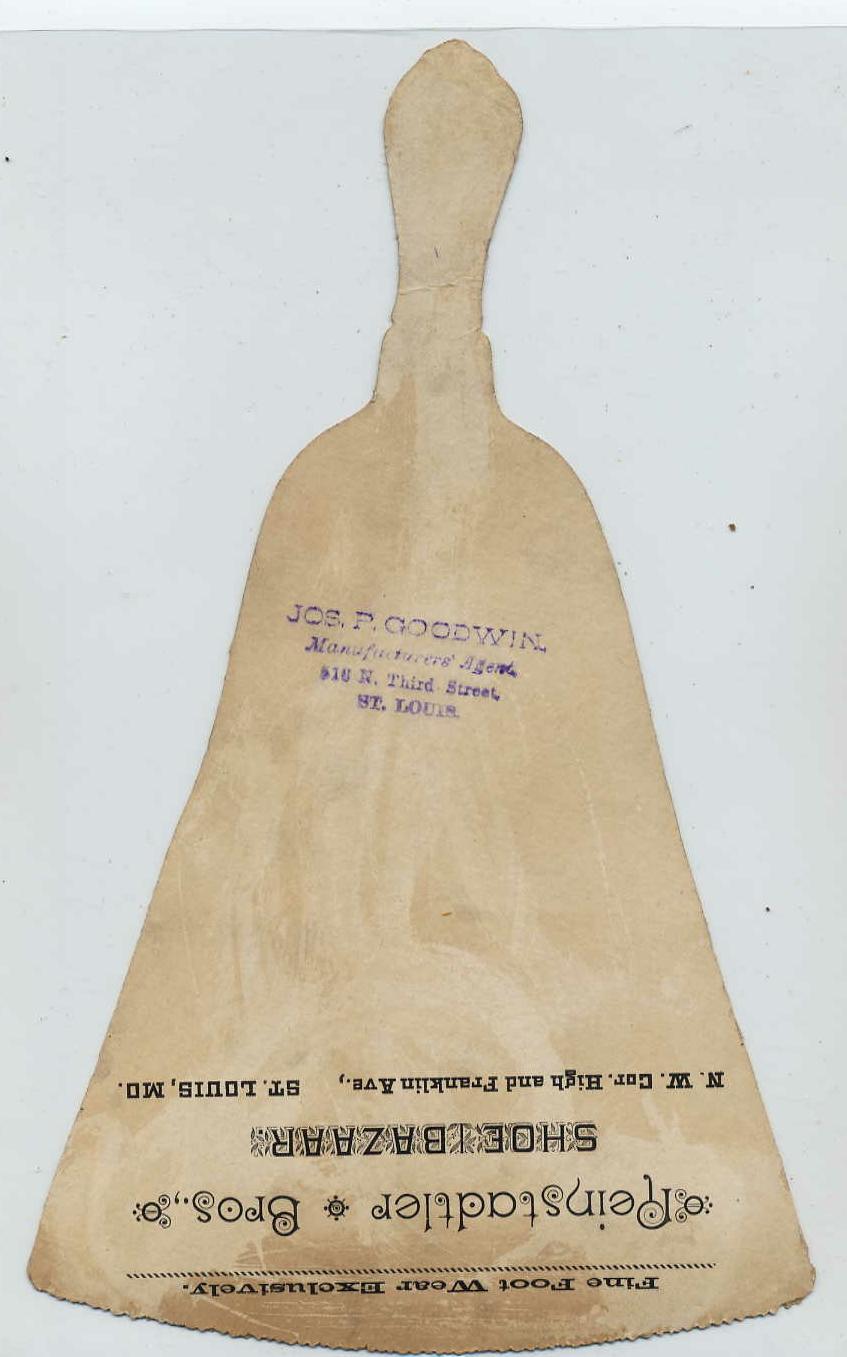 JOS. P. GOODWIN,
Manufacturers' Agent,
N. Third Street,
ST. LOUIS.
Fine Foot Wear Exclusively.
Reinstadtler Bros.,
SHOE BAZAAR.
N. W. Cor. High and Franklin Ave., ST. LOUIS, MO.